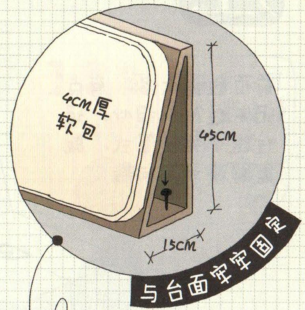 4CM厚
软包
45CM
15CM
与台面牢牢固定